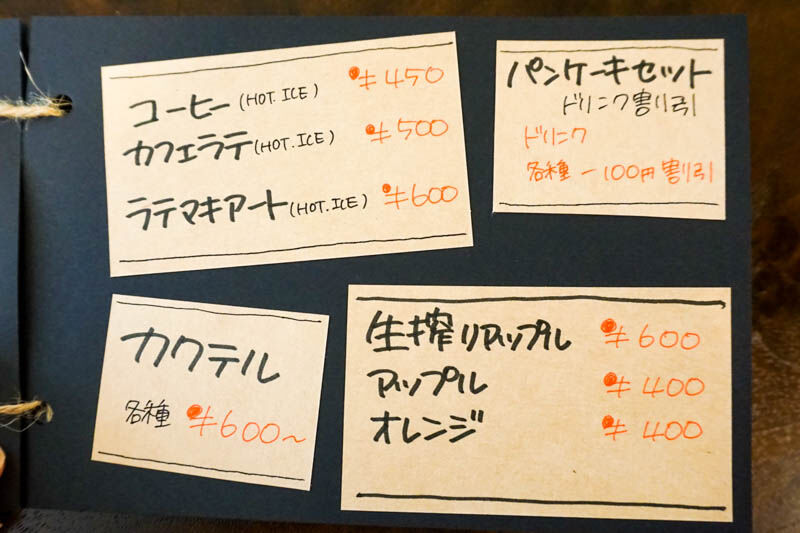 コーヒー(HOT.ICE) ¥450
カフェラテ(HOT.ICE) ¥500
ラテマキアート(HOT.ICE) ¥600
パンケーキセット
ドリンク割り引
ドリンク
各種 -100円割り引
カクテル
各種 ¥600~
生搾りアップル ¥600
アップル ¥400
オレンジ ¥400